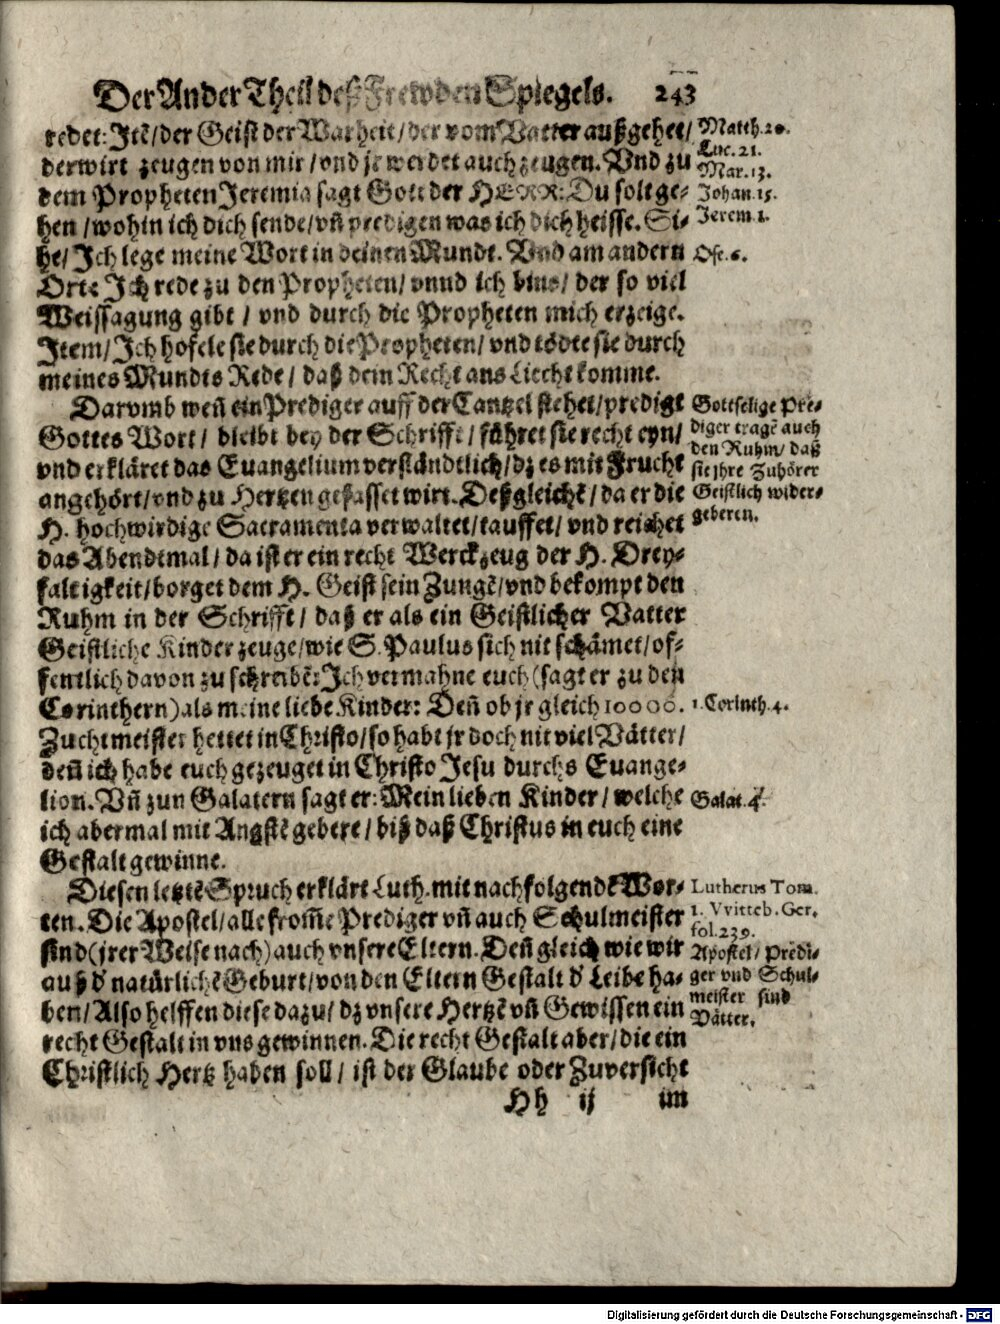 Der Ander Theil deß Frewden Spiegels. 243
redet: Itē/ der Geist der Warheit/ der vom Vatter außgehet/
derwirt zeugen von mir/ vnd jr werdet auch zeugen. Vnd zu
dem Propheten Jeremia sagt Gott der HERR: Du solt ge-
hen/ wohin ich dich sende/ vñ predigen was ich dich heisse. Si-
he/ Ich lege meine Wort in deinen Mundt. Vnd am andern
Ort: Ich rede zu den Propheten/ vnnd ich bins/ der so viel
Weissagung gibt/ vnd durch die Propheten mich erzeige.
Item/ Ich hofele sie durch die Propheten/ vnd tödte sie durch
meines Mundts Rede/ daß dein Recht ans Liecht komme.
Matth. 10.
Luc. 21.
Mar. 13.
Johan. 15.
Jerem. 1.
Ose. 6.
Darvmb weñ ein Prediger auff der Cantzel stehet/ predigt
Gottes Wort/ bleibt bey der Schrifft/ führet sie recht eyn/
vnd erkläret das Euangelium verständtlich/ dz es mit Frucht
angehört/ vnd zu Hertzen gefasset wirt. Deßgleichē/ da er die
H. hochwirdige Sacramenta verwaltet/ tauffet/ vnd reichet
das Abendtmal/ da ist er ein recht Werckzeug der H. Drey-
faltigkeit/ borget dem H. Geist sein Zungē/ vnd bekompt den
Ruhm in der Schrifft/ daß er als ein Geistlicher Vatter
Geistliche Kinder zeuge/ wie S. Paulus sich nit schämet/ of-
fentlich davon zu schreibē: Ich vermahne euch (sagt er zu den
Corinthern) als meine liebe Kinder: Deñ ob jr gleich 10000.
Zuchtmeister hettet in Christo/ so habt jr doch nit viel Vätter/
deñ ich habe euch gezeuget in Christo Jesu durchs Euange-
lion. Vñ zun Galatern sagt er: Mein lieben Kinder/ welche
ich abermal mit Angstē gebere/ biß daß Christus in euch eine
Gestalt gewinne.
Gottselige Pre-
diger tragē auch
den Ruhm/ daß
sie jhre Zuhörer
Geistlich wider-
geberen.
1. Corinth. 4.
Galat. 4.
Diesen letztē Spruch erklärt Luth. mit nachfolgendē Wor-
ten. Die Apostel/ alle from̃e Prediger vñ auch Schulmeister
sind (jrer Weise nach) auch vnsere Eltern. Deñ gleich wie wir
auß d' natürlichē Geburt/ von den Eltern Gestalt d' Leibe ha-
ben/ Also helffen diese dazu/ dz vnsere Hertzē vñ Gewissen ein
recht Gestalt in vns gewinnen. Die recht Gestalt aber/ die ein
Christlich Hertz haben soll/ ist der Glaube oder Zuversicht
Lutherus Tom.
1. Vvitteb. Ger.
fol. 239.
Apostel/ Predi-
ger vnd Schul-
meister sind
Vätter.
Hh ij im
Digitalisierung gefördert durch die Deutsche Forschungsgemeinschaft - DFG